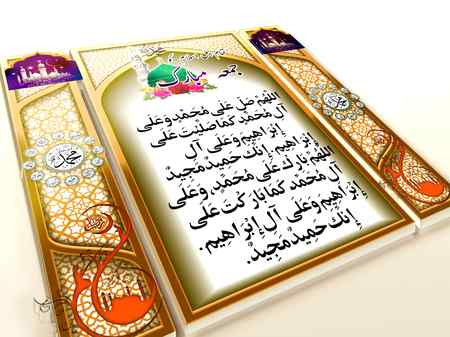 جمعہ مبارک
اللهم صل على محمد وعلى
آل محمد كما صليت على
إبراهيم وعلى آل
إبراهيم. إنك حميد مجيد
اللهم بارك على محمد، وعلى
آل محمد كما باركت على
إبراهيم وعلى آل إبراهيم.
إنك حميد مجيد.
محمد
محمد